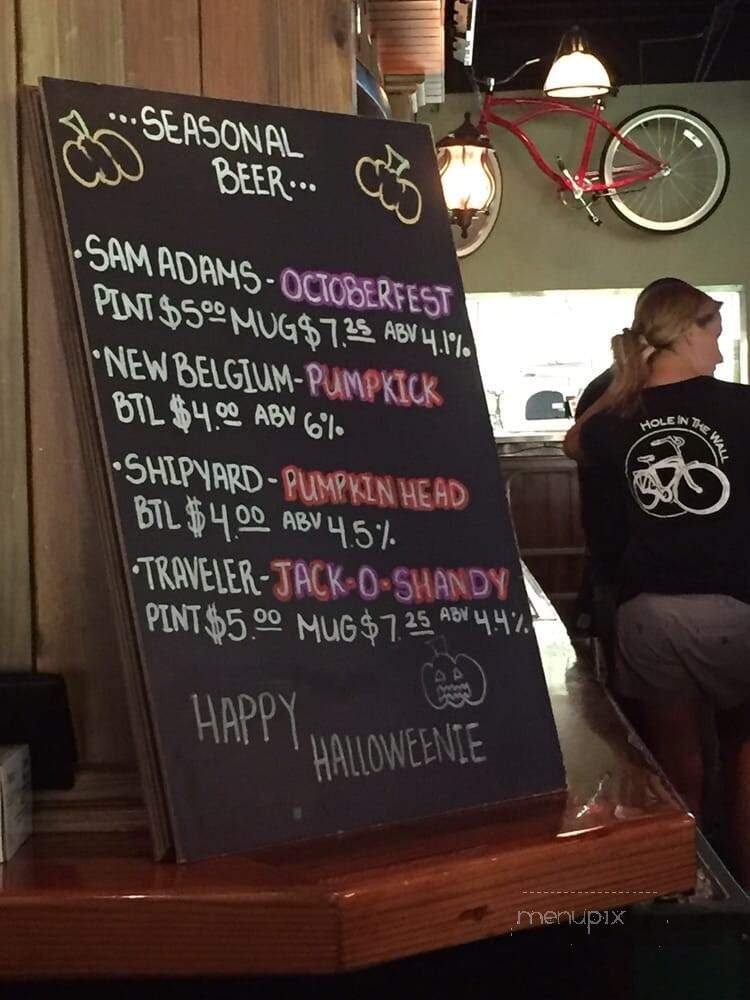 ...SEASONAL
BEER...
·SAM ADAMS - OCTOBERFEST
PINT $5.00 MUG $7.25 ABV 4.1%
·NEW BELGIUM - PUMPKICK
BTL $4.00 ABV 6%
·SHIPYARD - PUMPKIN HEAD
BTL $4.00 ABV 4.5%
·TRAVELER - JACK-O-SHANDY
PINT $5.00 MUG $7.25 ABV 4.4%
HAPPY
HALLOWEENIE
HOLE IN THE WALL
menupix